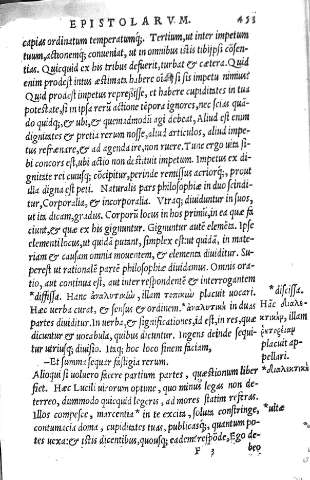 EPISTOLARVM. 453
capias ordinatum temperatumq́;. Tertium, ut inter impetum
tuum, actionemq́; conueniat, ut in omnibus istis tibi ipsi cōsen-
tias. Quicquid ex his tribus defuerit, turbat & cætera. Quid
enim prodest intus æstimata habere si sis impetu nimius?
Quid prodest impetus repressisse, et habere cupiditates in tua
potestate, si in ipsa rerū actione tēpora ignores, nec scias quā-
do quidq́;, & ubi, & quemadmodū agi debeat, Aliud est enim
dignitates & pretia rerum nosse, aliud articulos, aliud impe-
tus refrænare, & ad agenda ire, non ruere. Tunc ergo uita si-
bi concors est, ubi actio non destituit impetum. Impetus ex di-
gnitate rei cuiusq́; cōcipitur, perinde remissus acriorq́;, prout
illa digna est peti. Naturalis pars philosophiæ in duo scindi-
tur, Corporalia, & incorporalia. Vtraq́; diuiduntur in suos,
ut ita dicam, gradus. Corporū locus in hos primū, in ea quæ fa
ciunt, & quæ ex his gignuntur. Gignuntur autē elemēta. Ipse
elementi locus, ut quidā putant, simplex est: ut quidā, in mate-
riam & causam omnia mouentem, & elementa diuiditur. Su-
perest ut rationalē partē philosophiæ diuidamus. Omnis ora-
tio, aut continua est, aut inter respondentē & interrogantem
*diffissa. Hanc ἀναλυτικὼν, illam τοπικὼν placuit uocari. *discissa.
Hæc uerba curat, & sensus & ordinem. *ἀναλυτικὴ in duas Hāc διαλε-
partes diuiditur. In uerba, & significationes, id est, in res, quæ κτικὴν, illam
dicuntur & uocabula, quibus dicuntur. Ingens deinde sequi- ῥητορικὴν
tur utriusq́; diuisio. Itaq́; hoc loco finem faciam, placuit ap-
—Et summa sequar fastigia rerum. pellari.
Alioqui si uoluero facere partium partes, quæstionum liber *διαλεκτικὴ
fiet. Hæc Lucili uirorum optime, quo minus legas non de-
terreo, dummodo quicquid legeris, ad mores statim referas.
Illos compesce, marcentia* in te excita, soluta constringe, *ultæ
contumacia doma, cupiditates tuas, publicasq́;, quantum po-
tes uexa: & istis dicentibus, quousq́; eadem respōde, Ego de-
F 3 beo